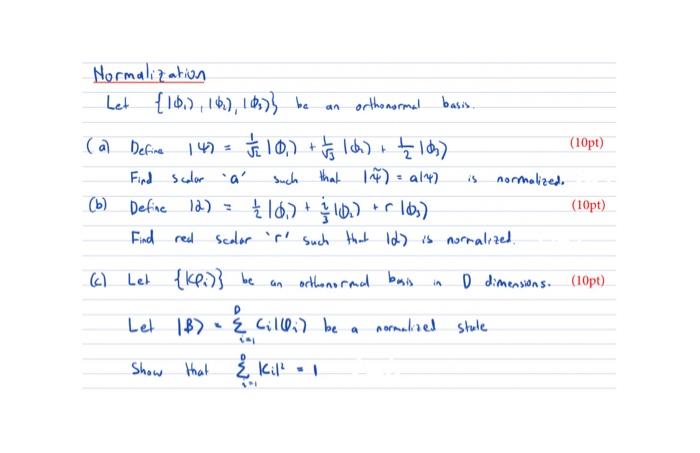 Normalization
Let {|ϕ₁⟩, |ϕ₂⟩, |ϕ₃⟩} be an orthonormal basis.
(a) Define |ψ⟩ = 1/√2 |ϕ₁⟩ + 1/√3 |ϕ₂⟩ + 1/2 |ϕ₃⟩ (10pt)
Find scalar 'a' such that |ψ̃⟩ = a|ψ⟩ is normalized.
(b) Define |α⟩ = 1/2 |ϕ₁⟩ + i/3 |ϕ₂⟩ + r |ϕ₃⟩ (10pt)
Find real scalar 'r' such that |α⟩ is normalized.
(c) Let {|φᵢ⟩} be an orthonormal basis in D dimensions. (10pt)
Let |β⟩ = Σᵢ₌₁ᴰ Cᵢ|φᵢ⟩ be a normalized state
Show that Σᵢ₌₁ᴰ |Cᵢ|² = 1